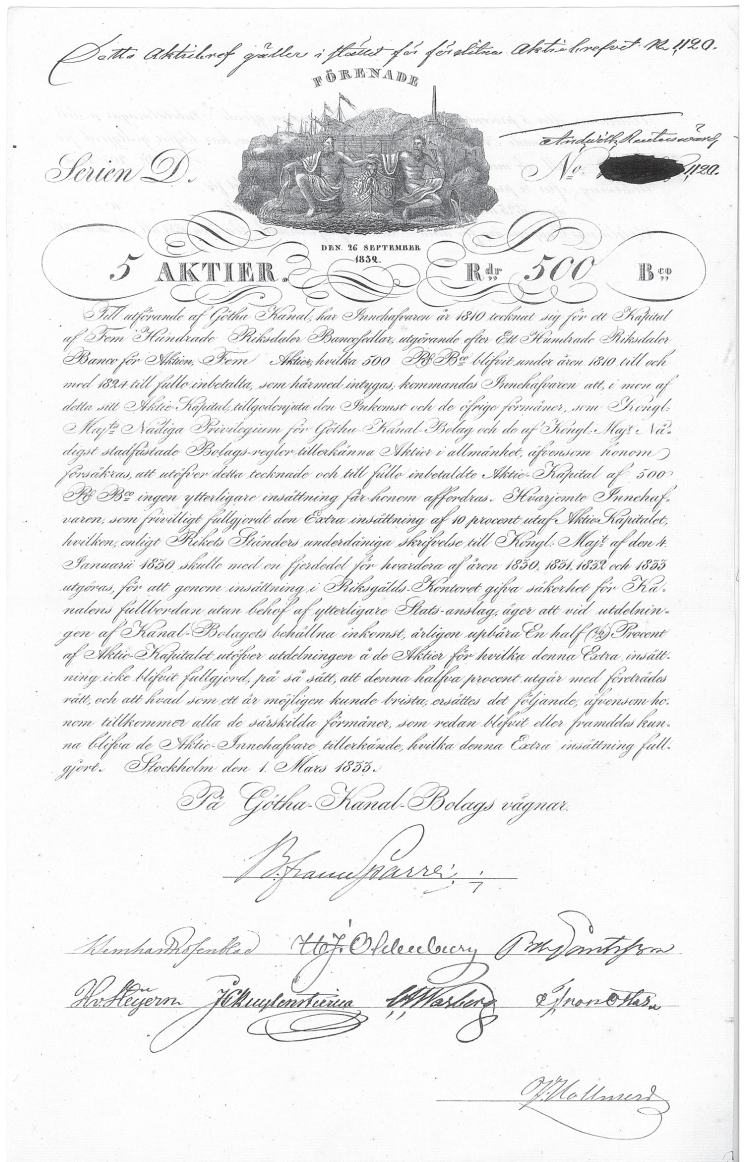 Detta Aktiebref gäller i stället för förslitna Aktiebrefvet No 1,120.
FÖRENADE
Serien D.
No. 1,120.
DEN 26 SEPTEMBER
1832.
5 AKTIER. Rdr 500 Bco
Till utförande af Götha Kanal, har Innehafvaren år 1810 tecknat sig för ett Kapital
af Fem Hundrade Riksdaler Bancosedlar, utgörande efter Ett Hundrade Riksdaler
Banco för Aktien, Fem Aktier, hvilka 500 Rdr Bco blifvit under åren 1810 till och
med 1824 till fullo inbetalta, som härmed intygas, kommandes Innehafvaren att, i mon af
detta sitt Aktie-Kapital, tillgodonjuta den Inkomst och de öfrige förmåner, som Kongl.
Majts Nådiga Privilegium för Götha-Kanal-Bolag och de af Kongl. Majt Nå-
digst stadfästade Bolags-regler tillerkänna Aktier i allmänhet, äfvensom honom
försäkras, att utöfver detta tecknade och till fullo inbetaldte Aktie-Kapital af 500
Rdr Bco ingen ytterligare insättning får honom affordras. Hvarjemte Innehaf-
varen, som frivilligt fullgjordt den Extra insättning af 10 procent utaf Aktie-Kapitalet,
hvilken, enligt Rikets Ständers underdåniga skrifvelse till Kongl. Majt af den 4.
Januarii 1830, skulle med en fjerdedel för hvardera af åren 1830, 1831, 1832 och 1833
utgöras, för att genom insättning i Riksgälds-Kontoret gifva säkerhet för Ka-
nalens fullbordan utan behof af ytterligare Stats-anslag, äger att vid utdelnin-
gen af Kanal-Bolagets behållna inkomst, årligen upbära En half (½) Procent
af Aktie-Kapitalet utöfver utdelningen å de Aktier för hvilka denna Extra insätt-
ning icke blifvit fullgjord, på så sätt, att denna halfva procent utgår med företrädes
rätt, och att hvad som ett år möjligen kunde brista, ersättes det följande, äfvensom ho-
nom tillkommer alla de särskilda förmåner, som redan blifvit eller framdeles kun-
na blifva de Aktie-Innehafvare tillerkände, hvilka denna Extra insättning full-
gjort. Stockholm den 1. Mars 1833.
På Götha-Kanal-Bolags vägnar.
B. franc Sparre.
Rosenblad Oldenburg
Warberg